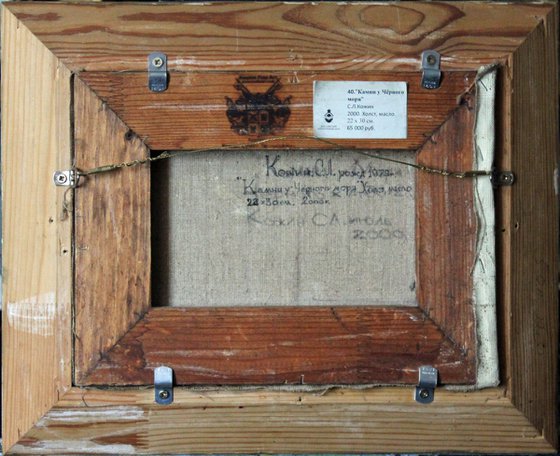 40."Камни у Чёрного
моря"
С.Л.Кожин
2000. Холст, масло.
22 х 30 см.
65 000 руб.
Кожин С.Л. рожд 1979г.
"Камни у Чёрного моря Холст, масло
22×30см. 2000г.
Кожин С.Л. июль
2000.